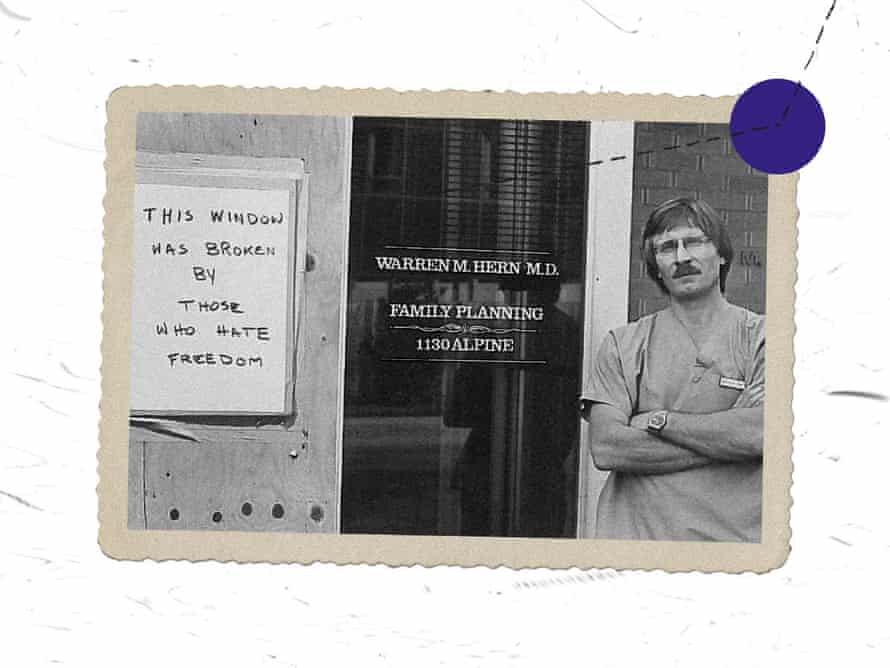 THIS WINDOW
WAS BROKEN
BY
THOSE
WHO HATE
FREEDOM
WARREN M. HERN M.D.
FAMILY PLANNING
1130 ALPINE